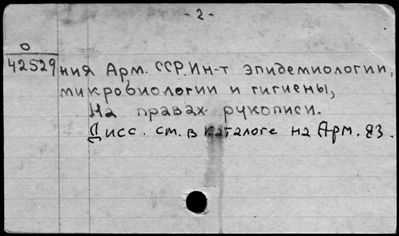 - 2 -
О
42529
ния Арм. ССР. Ин-т эпидемиологии,
микробиологии и гигиены,
На правах рукописи.
Дисс. см. в каталоге на Арм. яз.